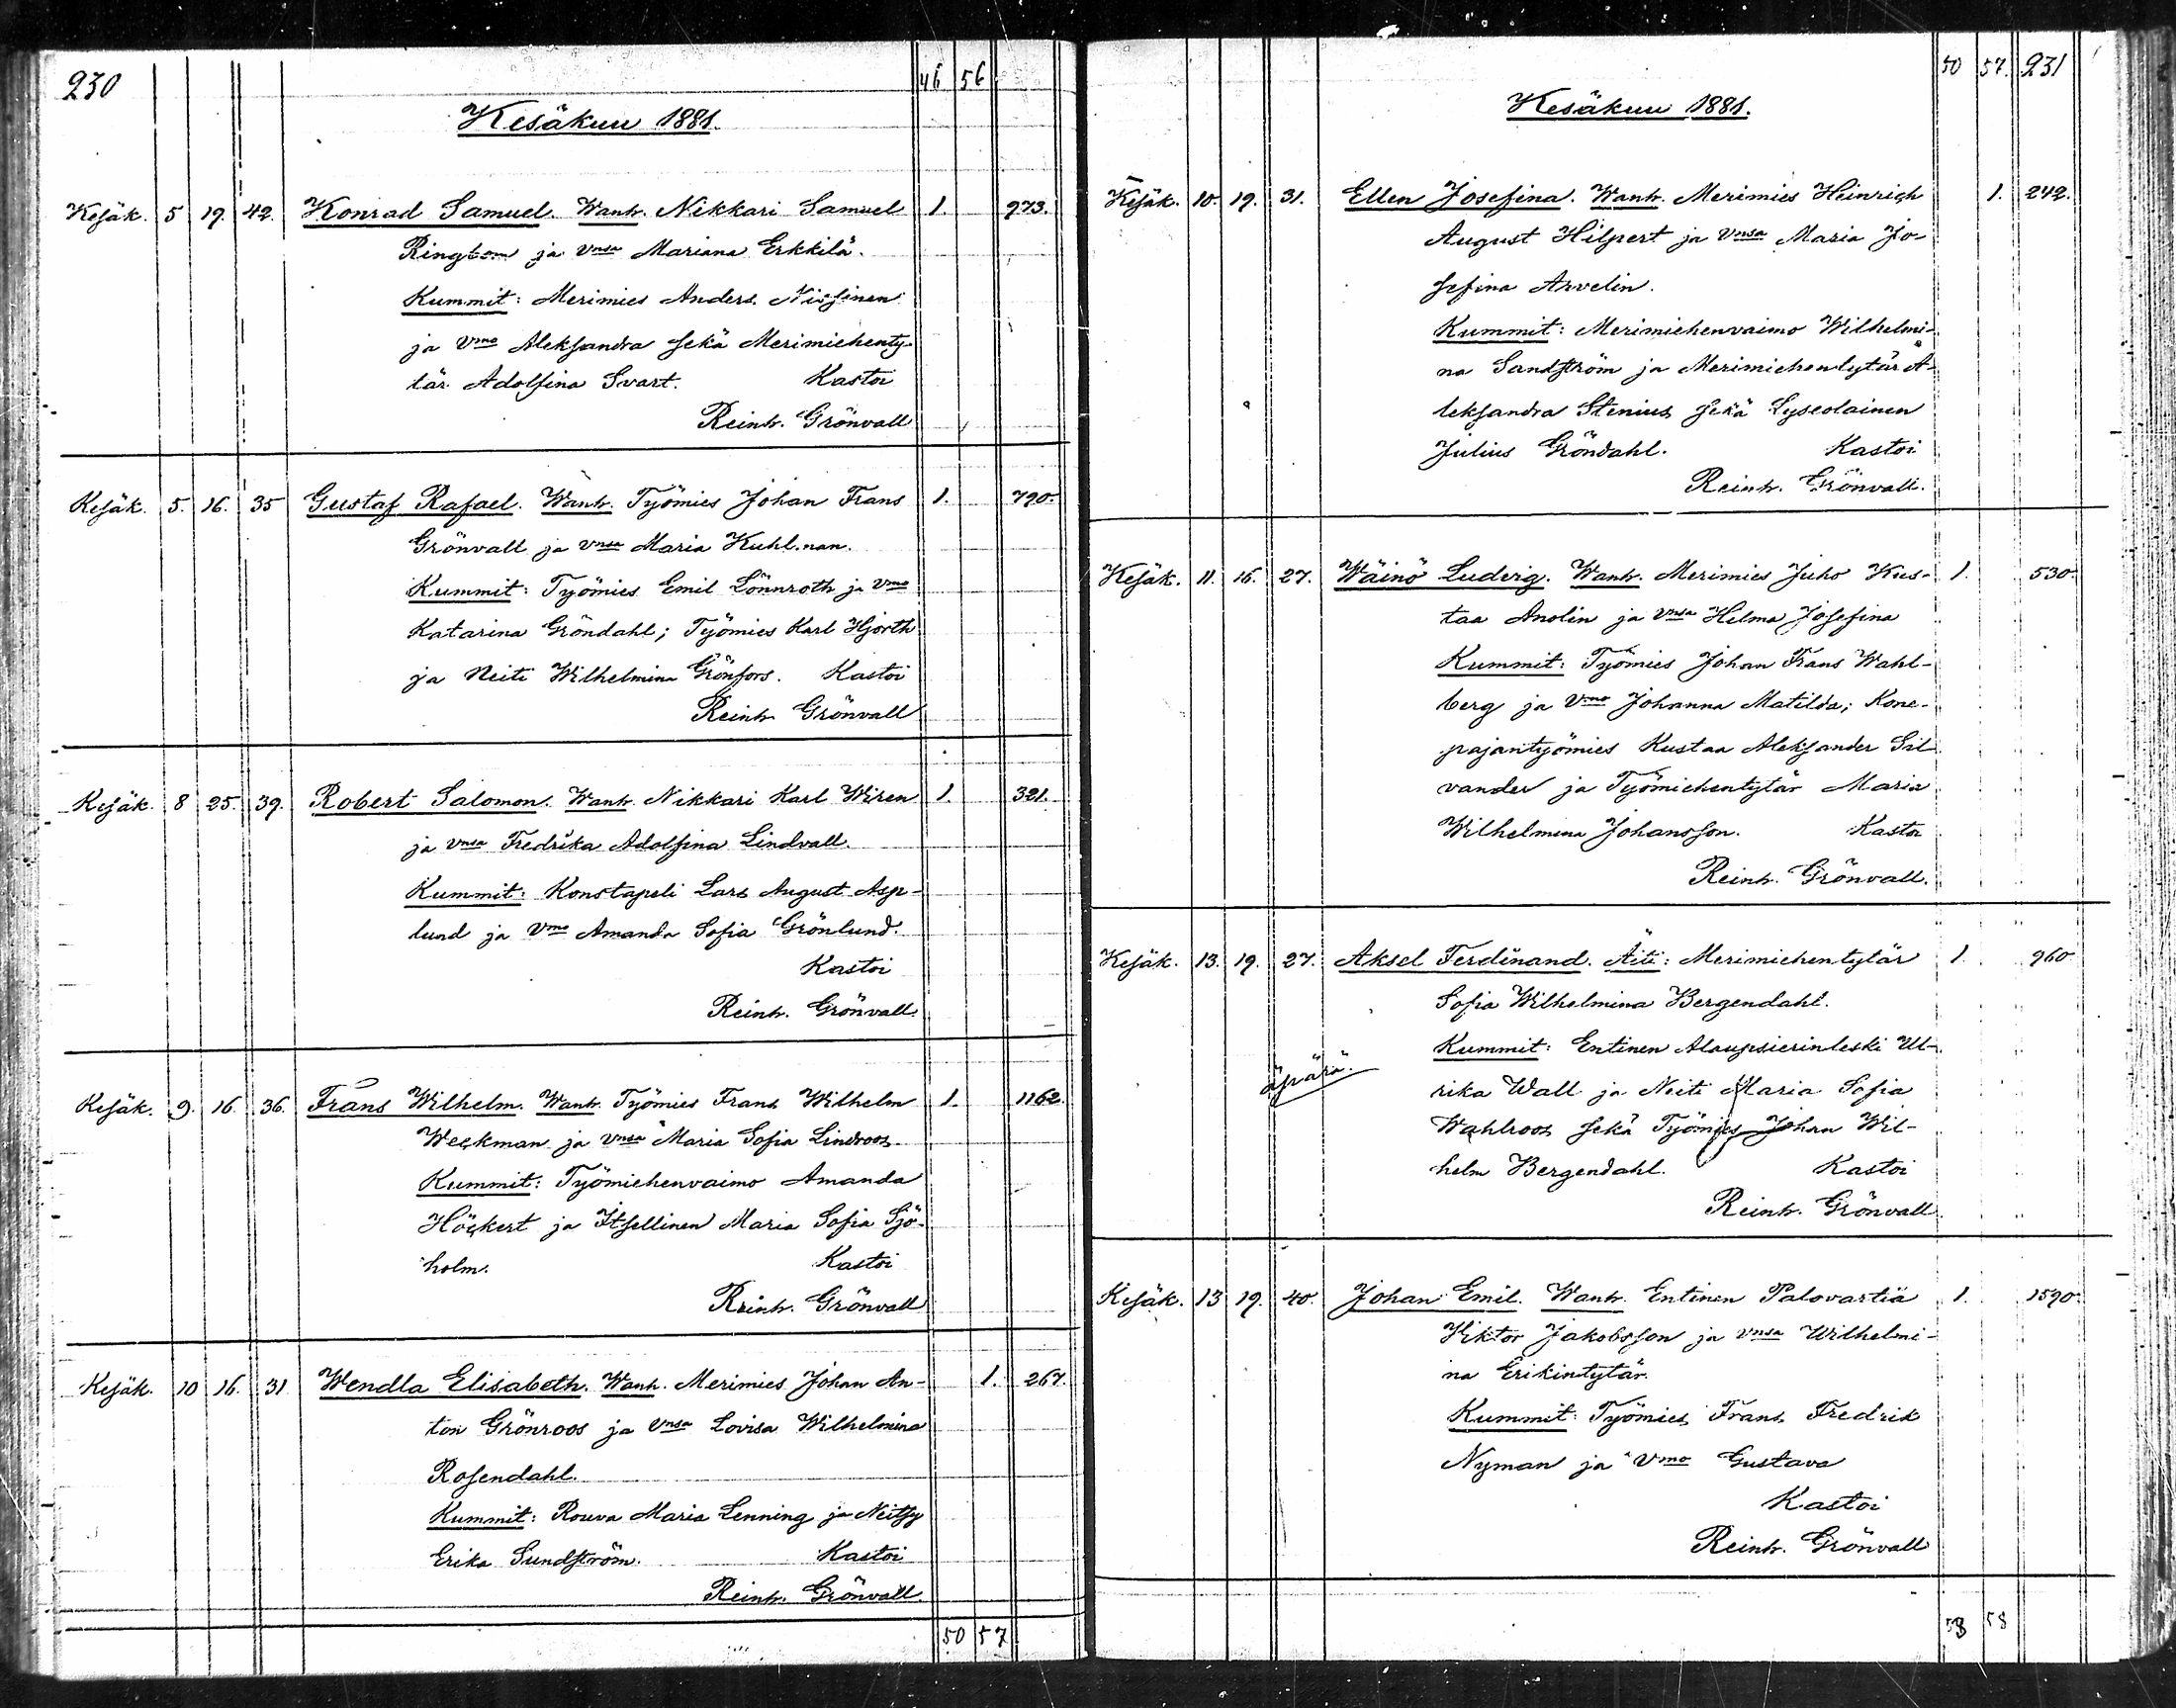 230 46 56
Kesäkuu 1881.
Kesäk. 5 19. 42. Konrad Samuel. Wanh. Nikkari Samuel 1. 973.
Ringbom ja vnsa Mariana Erkkilä.
Kummit: Merimies Anders
ja Vmo Aleksandra sekä Merimiehenty-
tär Adolfina Svart. Kastoi
Reinh. Grönvall
Kesäk. 5. 16. 35 Gustaf Rafael. Wanh. Työmies Johan Frans 1. 790.
Grönvall ja vnsa Maria Kuhlman.
Kummit: Työmies Emil Lönnroth ja Vmo
Katarina Gröndahl; Työmies Karl Hjorth
ja Neiti Wilhelmina Grönfors. Kastoi
Reinh. Grönvall
Kesäk. 8 25. 39. Robert Salomon. Wanh. Nikkari Karl Wiren 1. 321.
ja vnsa Fredrika Adolfina Lindvall.
Kummit: Konstapeli Lars August Asp-
lund ja Vmo Amanda Sofia Grönlund.
Kastoi
Reinh. Grönvall.
Kesäk. 9. 16. 36. Frans Wilhelm. Wanh. Työmies Frans Wilhelm 1. 1162.
Weckman ja vnsa Maria Sofia Lindroos.
Kummit: Työmiehenvaimo Amanda
Höckert ja Itsellinen Maria Sofia Sjö-
holm. Kastoi
Reinh. Grönvall
Kesäk. 10 16. 31 Wendla Elisabeth. Wanh. Merimies Johan An- 1. 267.
ton Grönroos ja vnsa Lovisa Wilhelmina
Rosendahl.
Kummit: Rouva Maria Lenning ja Neitsy
Erika Sundström. Kastoi
Reinh. Grönvall.
50 57
50 57. 231
Kesäkuu 1881.
Kesäk. 10. 19. 31. Ellen Josefina. Wanh. Merimies Heinrich 1. 242.
August Hilpert ja vnsa Maria Jo-
sefina Arvelin.
Kummit: Merimiehenvaimo Wilhelmi-
na Sandström ja Merimiehentytär A-
leksandra Stenius sekä Lyseolainen
Julius Gröndahl. Kastoi
Reinh. Grönvall.
Kesäk. 11. 16. 27. Wäinö Ludvig. Wanh. Merimies Juho Kus- 1. 530.
taa Anolin ja vnsa Helma Josefina
Kummit: Työmies Johan Frans Wahl-
berg ja Vmo Johanna Matilda; Kone-
pajantyömies Kustaa Aleksander Sil-
vander ja Työmiehentytär Maria
Wilhelmina Johansson. Kastoi
Reinh. Grönvall.
Kesäk. 13. 19. 27. Aksel Ferdinand. Äiti: Merimiehentytär 1. 960
Sofia Wilhelmina Bergendahl.
Kummit: Entinen Alaupsierinleski Ul-
äpärä. rika Wall ja Neiti Maria Sofia
Wahlroos sekä Työmies Johan Wil-
helm Bergendahl. Kastoi
Reinh. Grönvall
Kesäk. 13 19. 40. Johan Emil. Wanh. Entinen Palovartia 1. 1590.
Viktor Jakobsson ja vnsa Wilhelmi-
na Erikintytär.
Kummit: Työmies Frans Fredrik
Nyman ja Vmo Gustava
Kastoi
Reinh. Grönvall
58